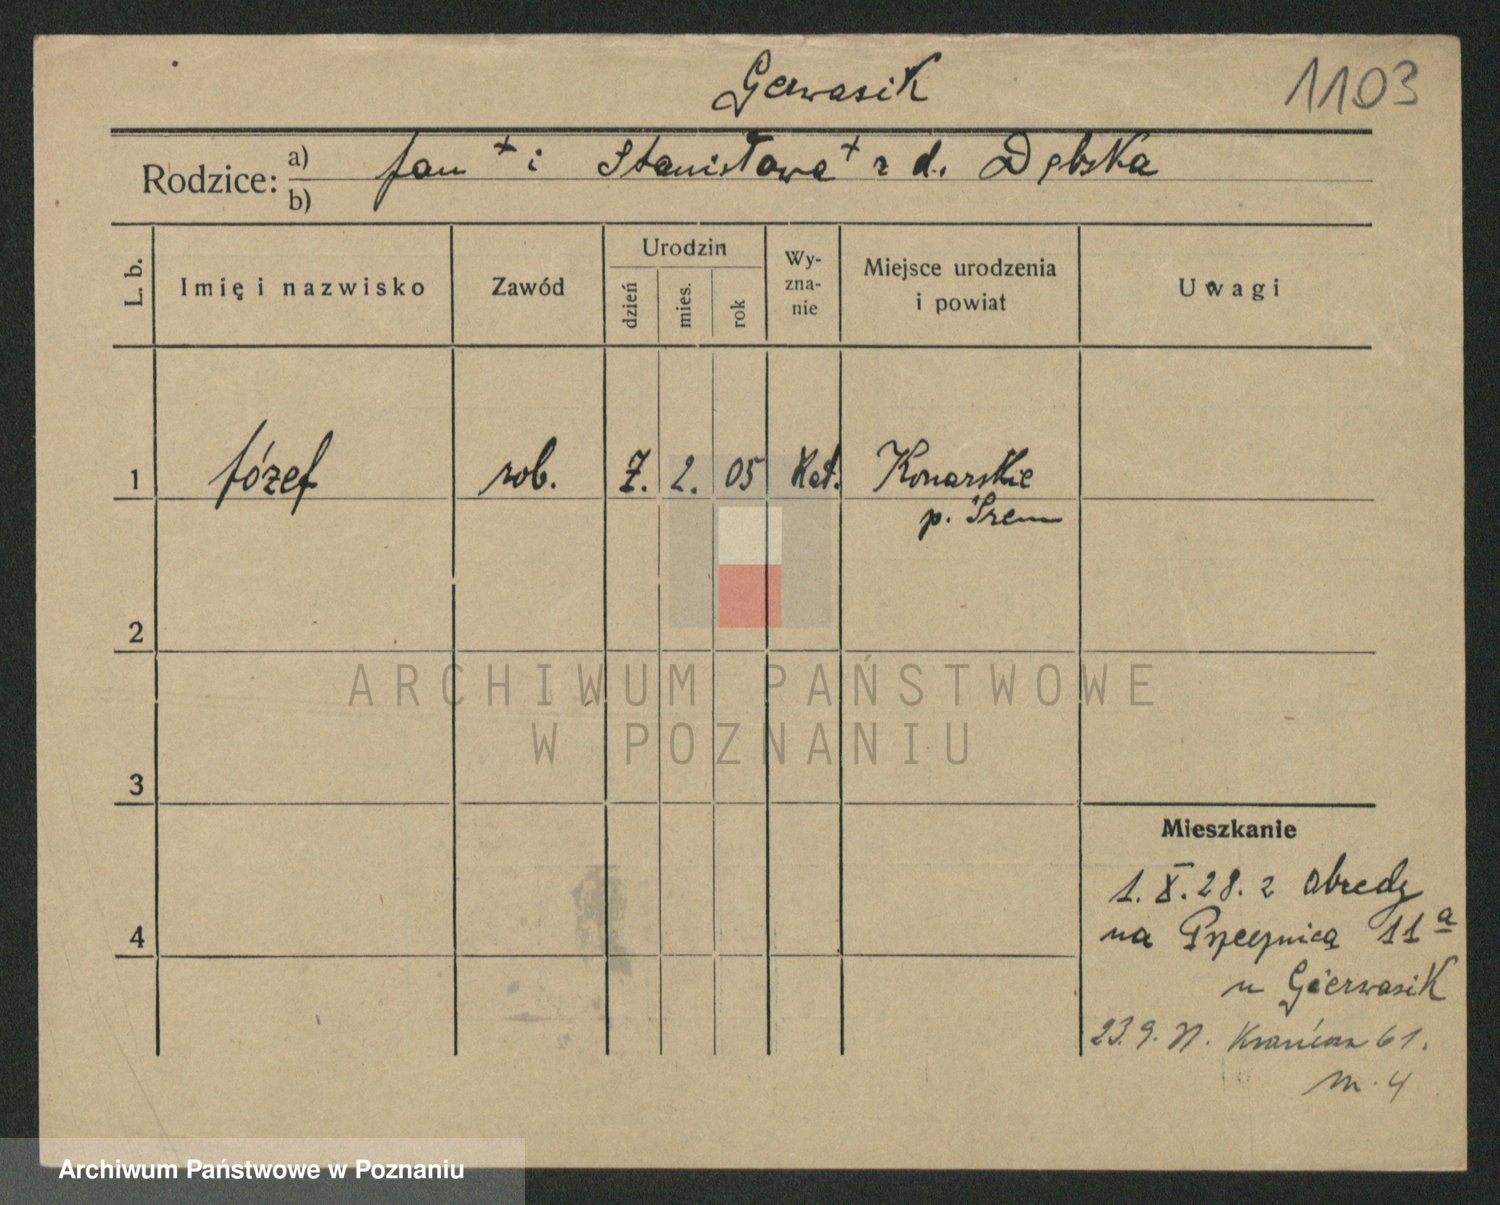 Gerwasik
1103
Rodzice: a) Jan + i Stanisława + z d. Dębska
b)
L. b.
Imię i nazwisko
Zawód
Urodzin
dzień
mies.
rok
Wy-
zna-
nie
Miejsce urodzenia
i powiat
Uwagi
1 Józef rob. 7. 2. 05 Kat. Konarskie
p. Śrem
2
ARCHIWUM PAŃSTWOWE
W POZNANIU
3
Mieszkanie
1. X. 28. z Obredz
na 11a
4
u Gierwasik
23.9. 61.
m. 4
Archiwum Państwowe w Poznaniu